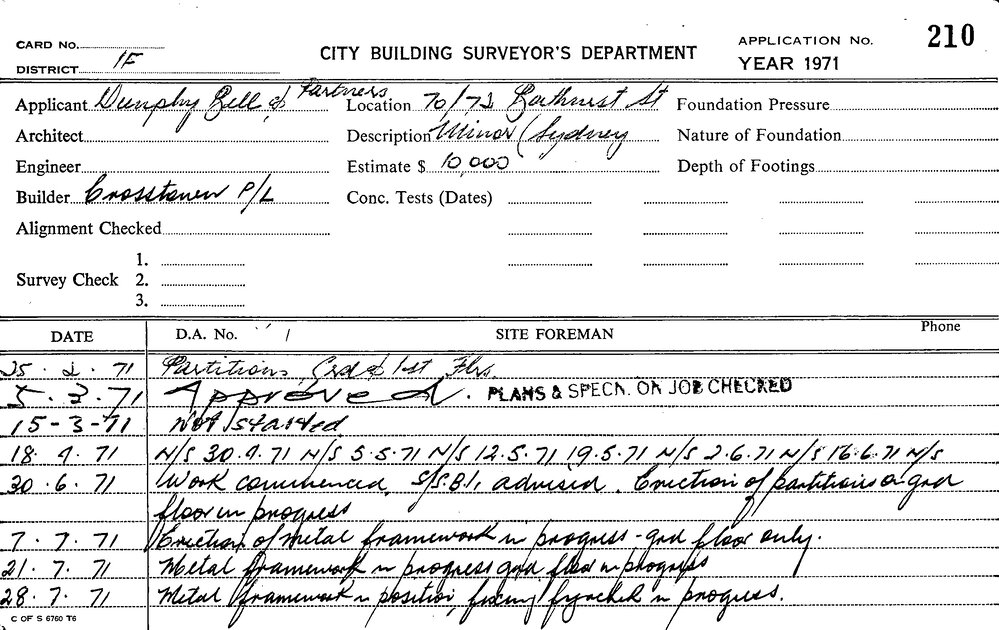 CARD No.
CITY BUILDING SURVEYOR'S DEPARTMENT
APPLICATION No. 210
DISTRICT 1F
YEAR 1971
Applicant Dunphy Bell & Partners Location 70/72 Bathurst St Foundation Pressure
Architect Description Minor (Sydney Nature of Foundation
Engineer Estimate $ 10,000 Depth of Footings
Builder Crosstown P/L Conc. Tests (Dates)
Alignment Checked
1.
Survey Check 2.
3.
DATE D.A. No. / SITE FOREMAN Phone
25.2.71 Partitions, Grd & 1st Flrs.
5.3.71 Approved. PLANS & SPECN. ON JOB CHECKED
15-3-71 Not started
18.4.71 N/S 30.4.71 N/S 5.5.71 N/S 12.5.71 19.5.71 N/S 2.6.71 N/S 16.6.71 N/S
30.6.71 Work commenced, advised. Erection of partitions on grd
floor in progress
7.7.71 Erection of metal framework in progress - grd floor only.
21.7.71 Metal framework in progress grd floor in progress
28.7.71 Metal framework in position, fixing in progress.
C OF S 6760 T6